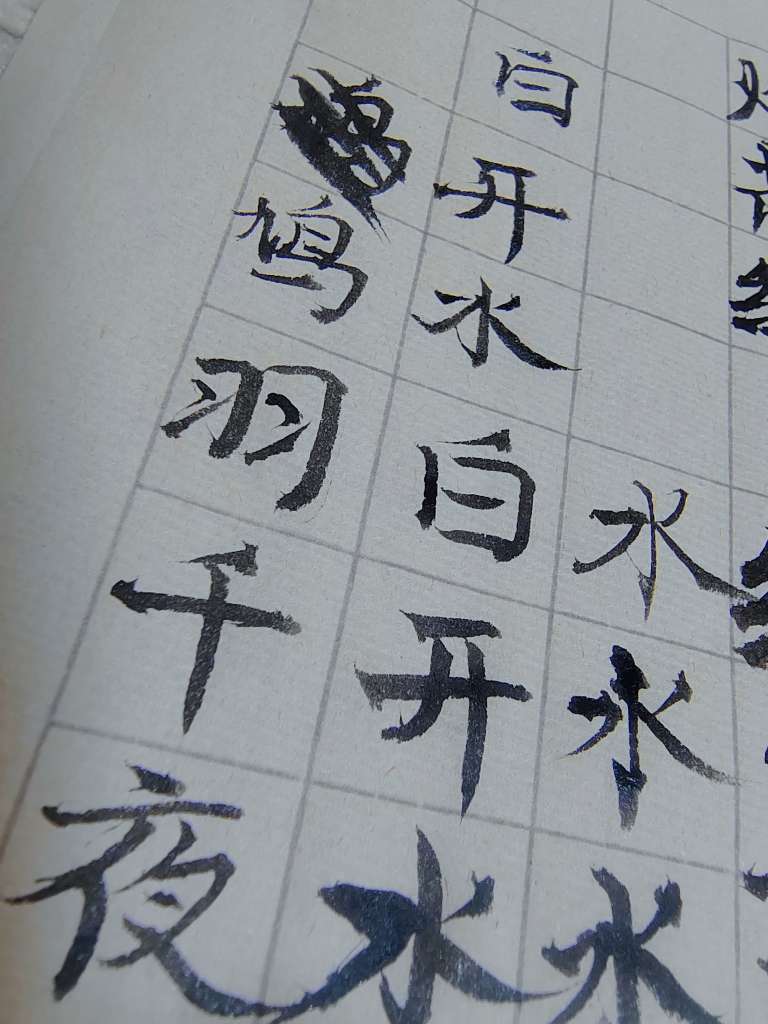 水水水
白开水白开水
鸠羽千夜